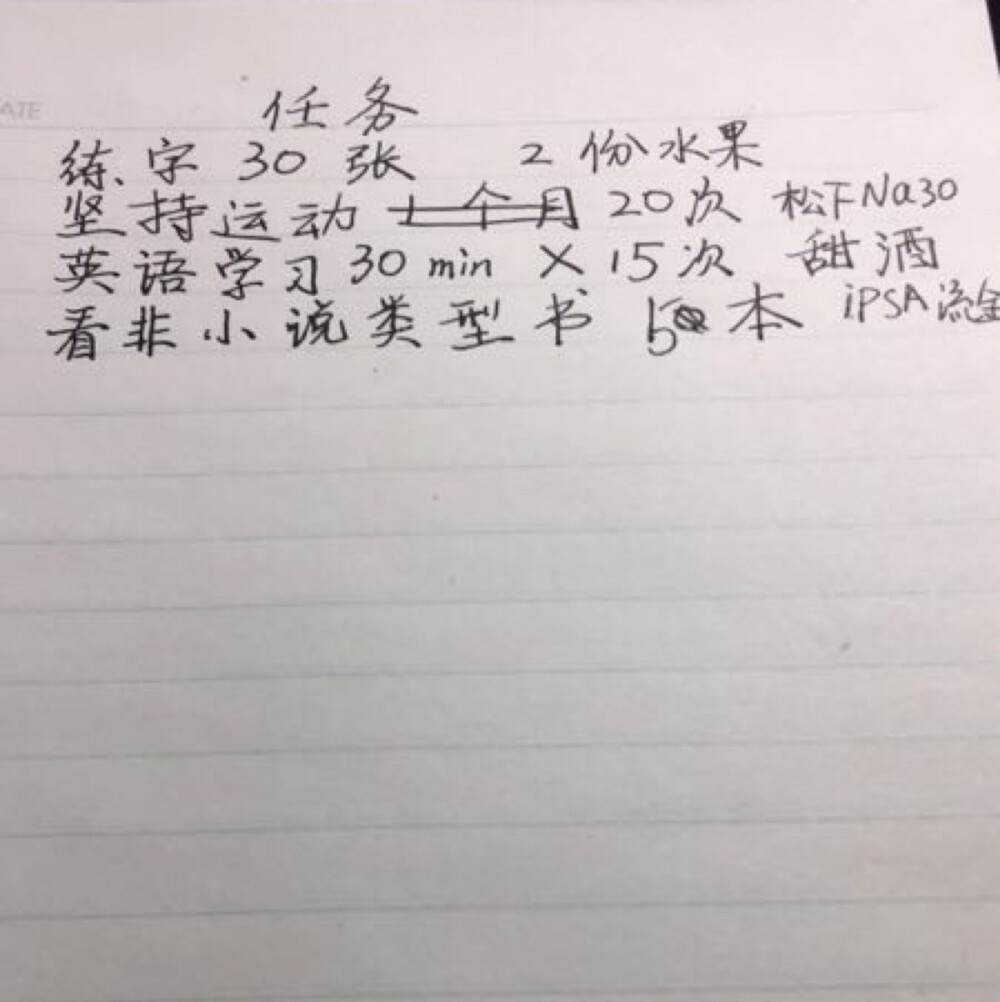 ATE
任务
练字 30 张 2 份水果
坚持运动 1个月 20次 松下Na30
英语学习 30 min × 15次 甜酒
看非小说类型书 5本 iPSA流金